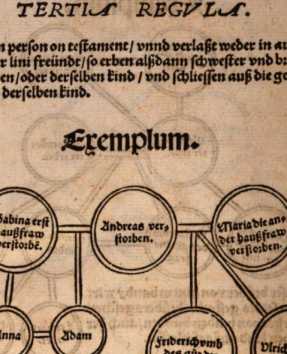 TERTIA REGVLA.
n person on testament / vnnd verlaßt weder in au
r lini freündt / so erben alßdann schwester vnd b
en / oder derselben kind / vnd schliessen auß die ge
derselben kind.
Exemplum.
abina erst
haußfraw
verstorbē.
Andreas ver-
storben.
Maria die an-
der haußfraw
verstorben.
nna
Adam
Friderich vmb
Vlrich